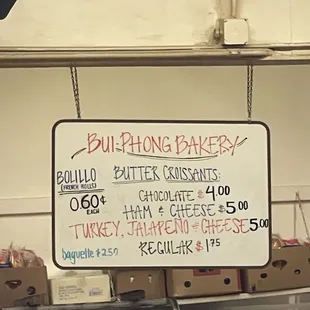 BUI-PHONG BAKERY
BOLILLO
(FRENCH ROLLS)
0.60¢
EACH
baguette $2.50
BUTTER CROISSANTS:
CHOCOLATE $4.00
HAM & CHEESE $5.00
TURKEY, JALAPEÑO & CHEESE 5.00
REGULAR $1.75